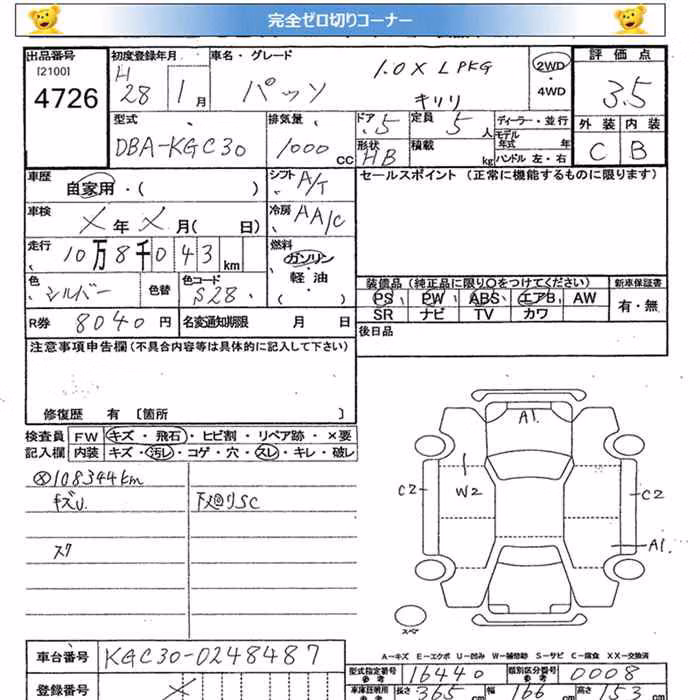 完全ゼロ切りコーナー
出品番号
[2100]
4726
初度登録年月
H
28 1月
車名・グレード
パッソ 1.0X L PKG
キリリ
2WD
・
4WD
評価点
3.5
外装 内装
C B
型式
DBA-KGC30
排気量
1000 CC
ドア
5
形状
HB
定員
5人
積載
kg
ディーラー・並行
モデル
年式 年
ハンドル 左・右
車歴
自家用・( )
シフト
A/T
セールスポイント (正常に機能するものに限ります)
車検
X年X月( 日)
冷房
AA/C
走行
10万8千043km
燃料
ガソリン
軽・油
( )
色
シルバー
色替
色コード
S28
装備品(純正品に限り〇をつけてください)
PS PW ABS エアB AW
SR ナビ TV カワ
新車保証書
有・無
R券 8040円
名変通知期限 月 日
後日品
注意事項申告欄(不具合内容等は具体的に記入して下さい)
修復歴 有 〔箇所 〕
検査員
記入欄
FW キズ・飛石・ヒビ割・リペア跡・×要
内装 キズ・汚レ・コゲ・穴・スレ・キレ・破レ
108344km
キズU.
下メ回りSC
スク
A1.
W2
C2
C2
A1.
スペア
A-キズ E-エクボ U-凹み W-補修跡 S-サビ C-腐食 XX-交換済
車台番号
KGC30-0248487
登録番号
型式指定番号
参考
16440
類別区分番号
参考
0008
車庫証明用
参考
長さ 365 cm
幅 166 cm
高さ 153 cm